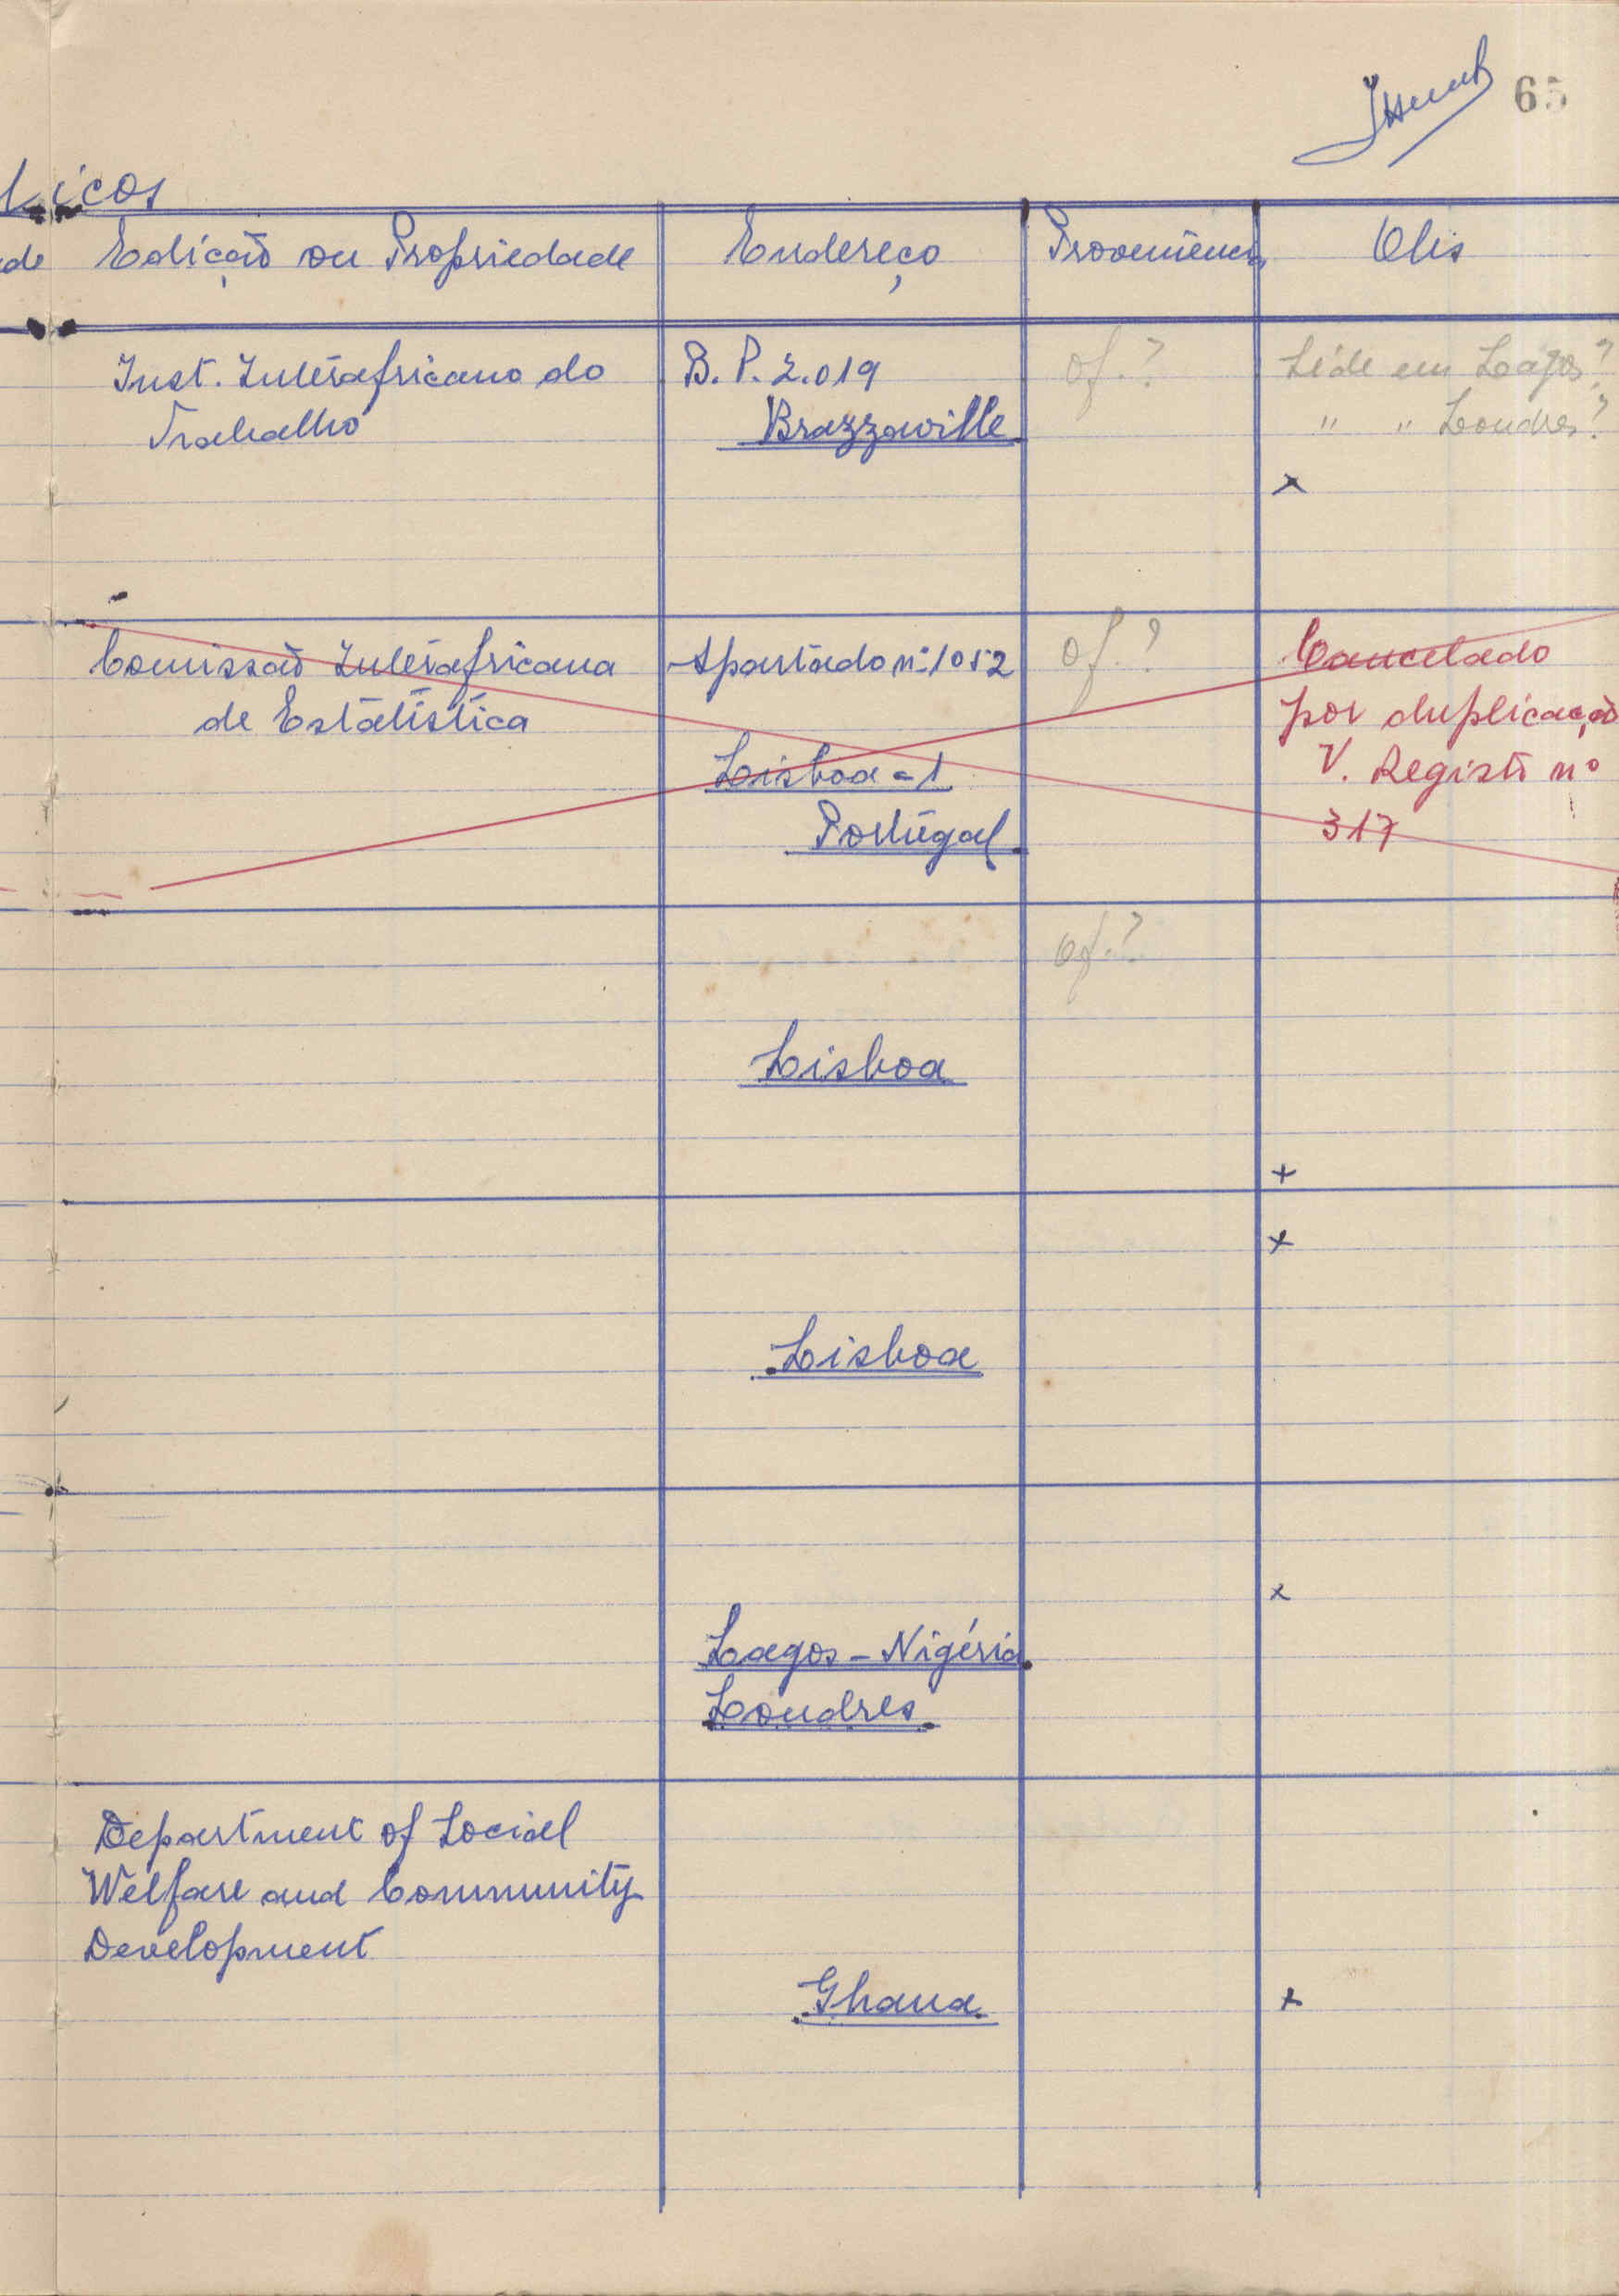 65
icos
de Edição ou Propriedade Endereço Proveniência Obs
Inst. Interafricano do B. P. 2.019 of.? Séde em Lagos?
Trabalho Brazzaville " " Londres?
x
Comissão Interafricana Apartado nº 1052 of.? Cancelado
de Estatística por duplicação
Lisboa-1 V. Registo nº
Portugal 317
of.?
Lisboa
+
x
Lisboa
x
Lagos - Nigéria
Londres
Department of Social
Welfare and Community
Development
Ghana +